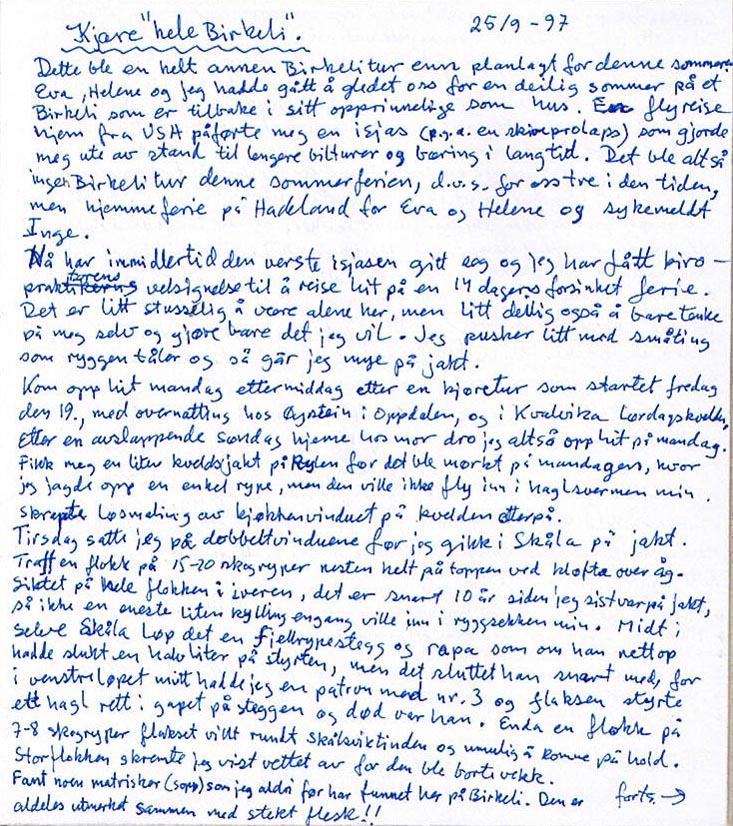 Kjære "hele Birkeli".
25/9-97
Dette ble en helt annen Birkelitur enn planlagt for denne sommer.
Eva, Helene og jeg hadde gått å gledet oss for en deilig sommer på et
Birkeli som er tilbake i sitt opprinnelige som hus. En flyreise
hjem fra USA påførte meg en isjas (p.g.a. en skiveprolaps) som gjorde
meg ute av stand til lengere bilturer og bæring i lang tid. Det ble altså
ingen Birkelitur denne sommerferien, d.v.s. for oss tre i den tiden,
men hjemmeferie på Hadeland for Eva og Helene og sykemeldt
Inge.
Nå har immidlertid den verste isjasen gitt seg og jeg har fått kiro-
praktorens velsignelse til å reise hit på en 14 dagers forsinket ferie.
Det er litt stusselig å være alene her, men litt deilig også å bare tenke
på meg selv og gjøre bare det jeg vil. Jeg pusher litt med småting
som ryggen tåler og så går jeg mye på jakt.
Kom opp hit mandag ettermiddag etter en kjøretur som startet fredag
den 19., med overnatting hos Øystein i Oppdalen, og i Kvalvika lørdagskvelden,
Etter en avslappende søndag hjemme hos mor dro jeg altså opp hit på mandag.
Fikk meg en liten kveldsjakt på Rylen før det ble mørkt på mandagen, hvor
jeg jagde opp en enkel rype, men den ville ikke fly inn i haglsvermen min.
skrapte løsmaling av kjøkkenvinduet på kvelden etterpå.
Tirsdag satte jeg på dobbeltvinduene før jeg gikk i Skåla på jakt.
Traff en flokk på 15-20 skogryper nesten helt på toppen ved kløfta over åg-
Siktet på hele flokken i iveren, det er snart 10 år siden jeg sist var på jakt,
så ikke en eneste liten kylling engang ville inn i ryggsekken min. Midt i
selve Skåla løp det en fjellrypestegg og rapa som om han nettop
hadde slukt en halvliter på styrten, men det sluttet han snart med, for
i venstreløpet mitt hadde jeg en patron med nr. 3 og flaksen styrte
ett hagl rett i gapet på steggen og død var han. Enda en flokk på
7-8 skogryper flakset vilt rundt skålsviktinden og umulig å komme på hold.
Storflokken skremte jeg vist vettet av for den ble borte vekk.
Fant noen matrisker (sopp) som jeg aldri før har funnet her på Birkeli. Den er
aldeles utmerket sammen med stekt flesk!!
forts. →